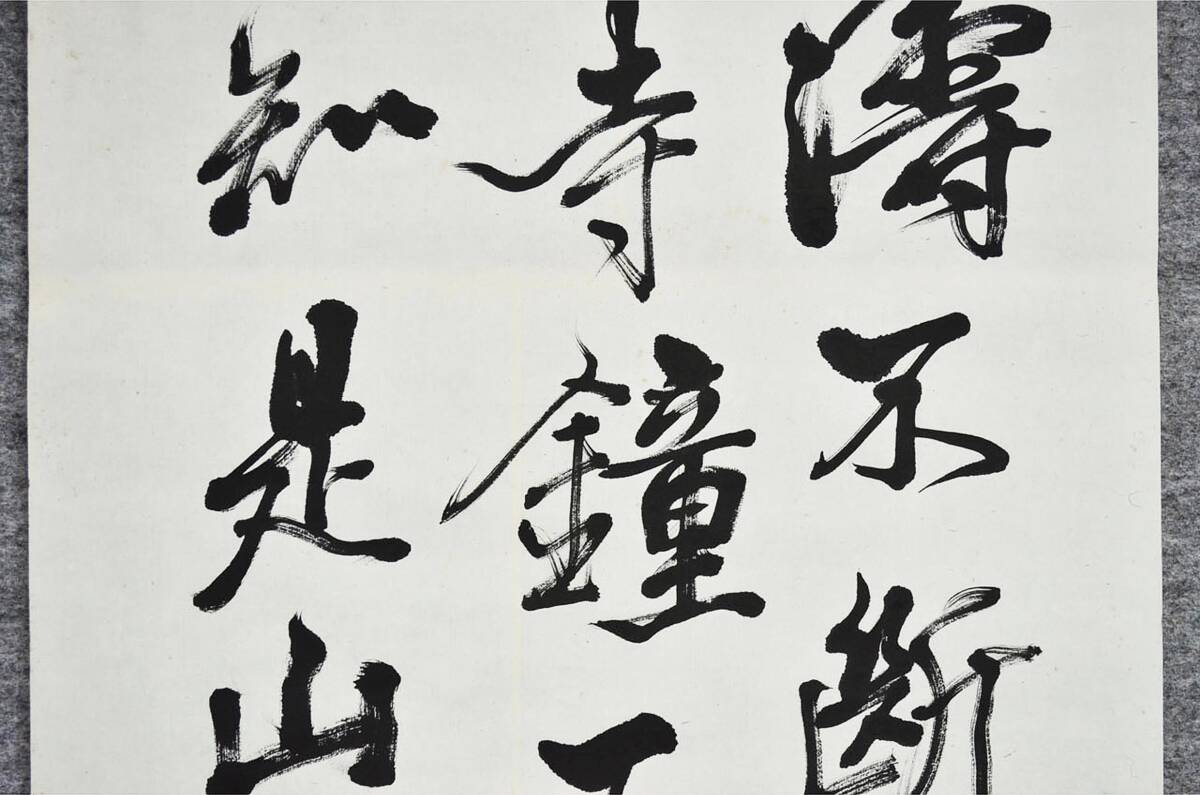 濤不斷
寺鐘
知是山